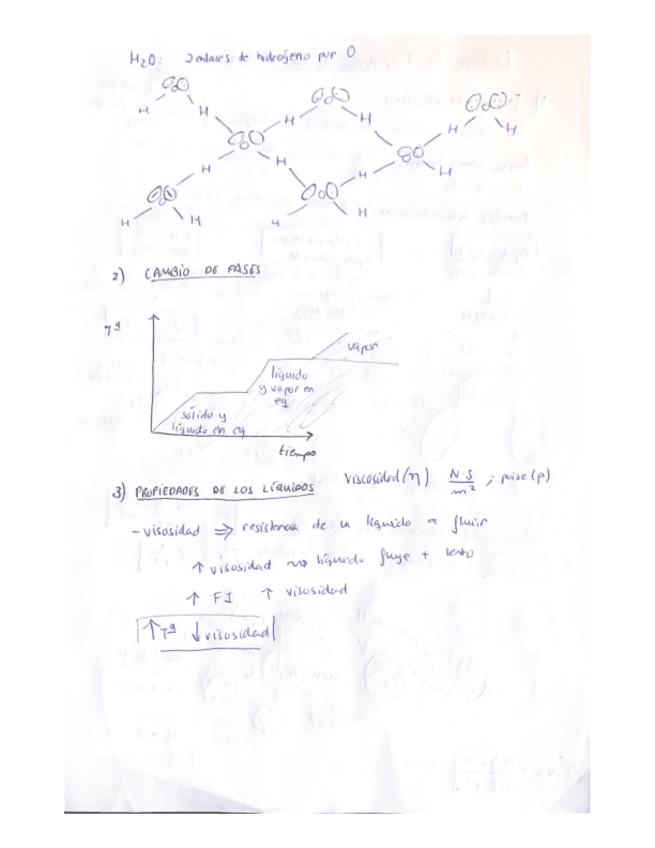 H2O: 2 enlaces de hidrógeno por O
H H H H H H
H H H
H H H H
H H
2) CAMBIO DE FASES
Tª
vapor
líquido
y vapor en
eq
sólido y
líquido en eq
tiempo
3) PROPIEDADES DE LOS LÍQUIDOS viscosidad (η) N·S/m² ; poise (p)
- visosidad ⇒ resistencia de un líquido a fluir
↑ visosidad ⇝ líquido fluye + lento
↑ FI ↑ visosidad
↑ Tª ↓ visosidad